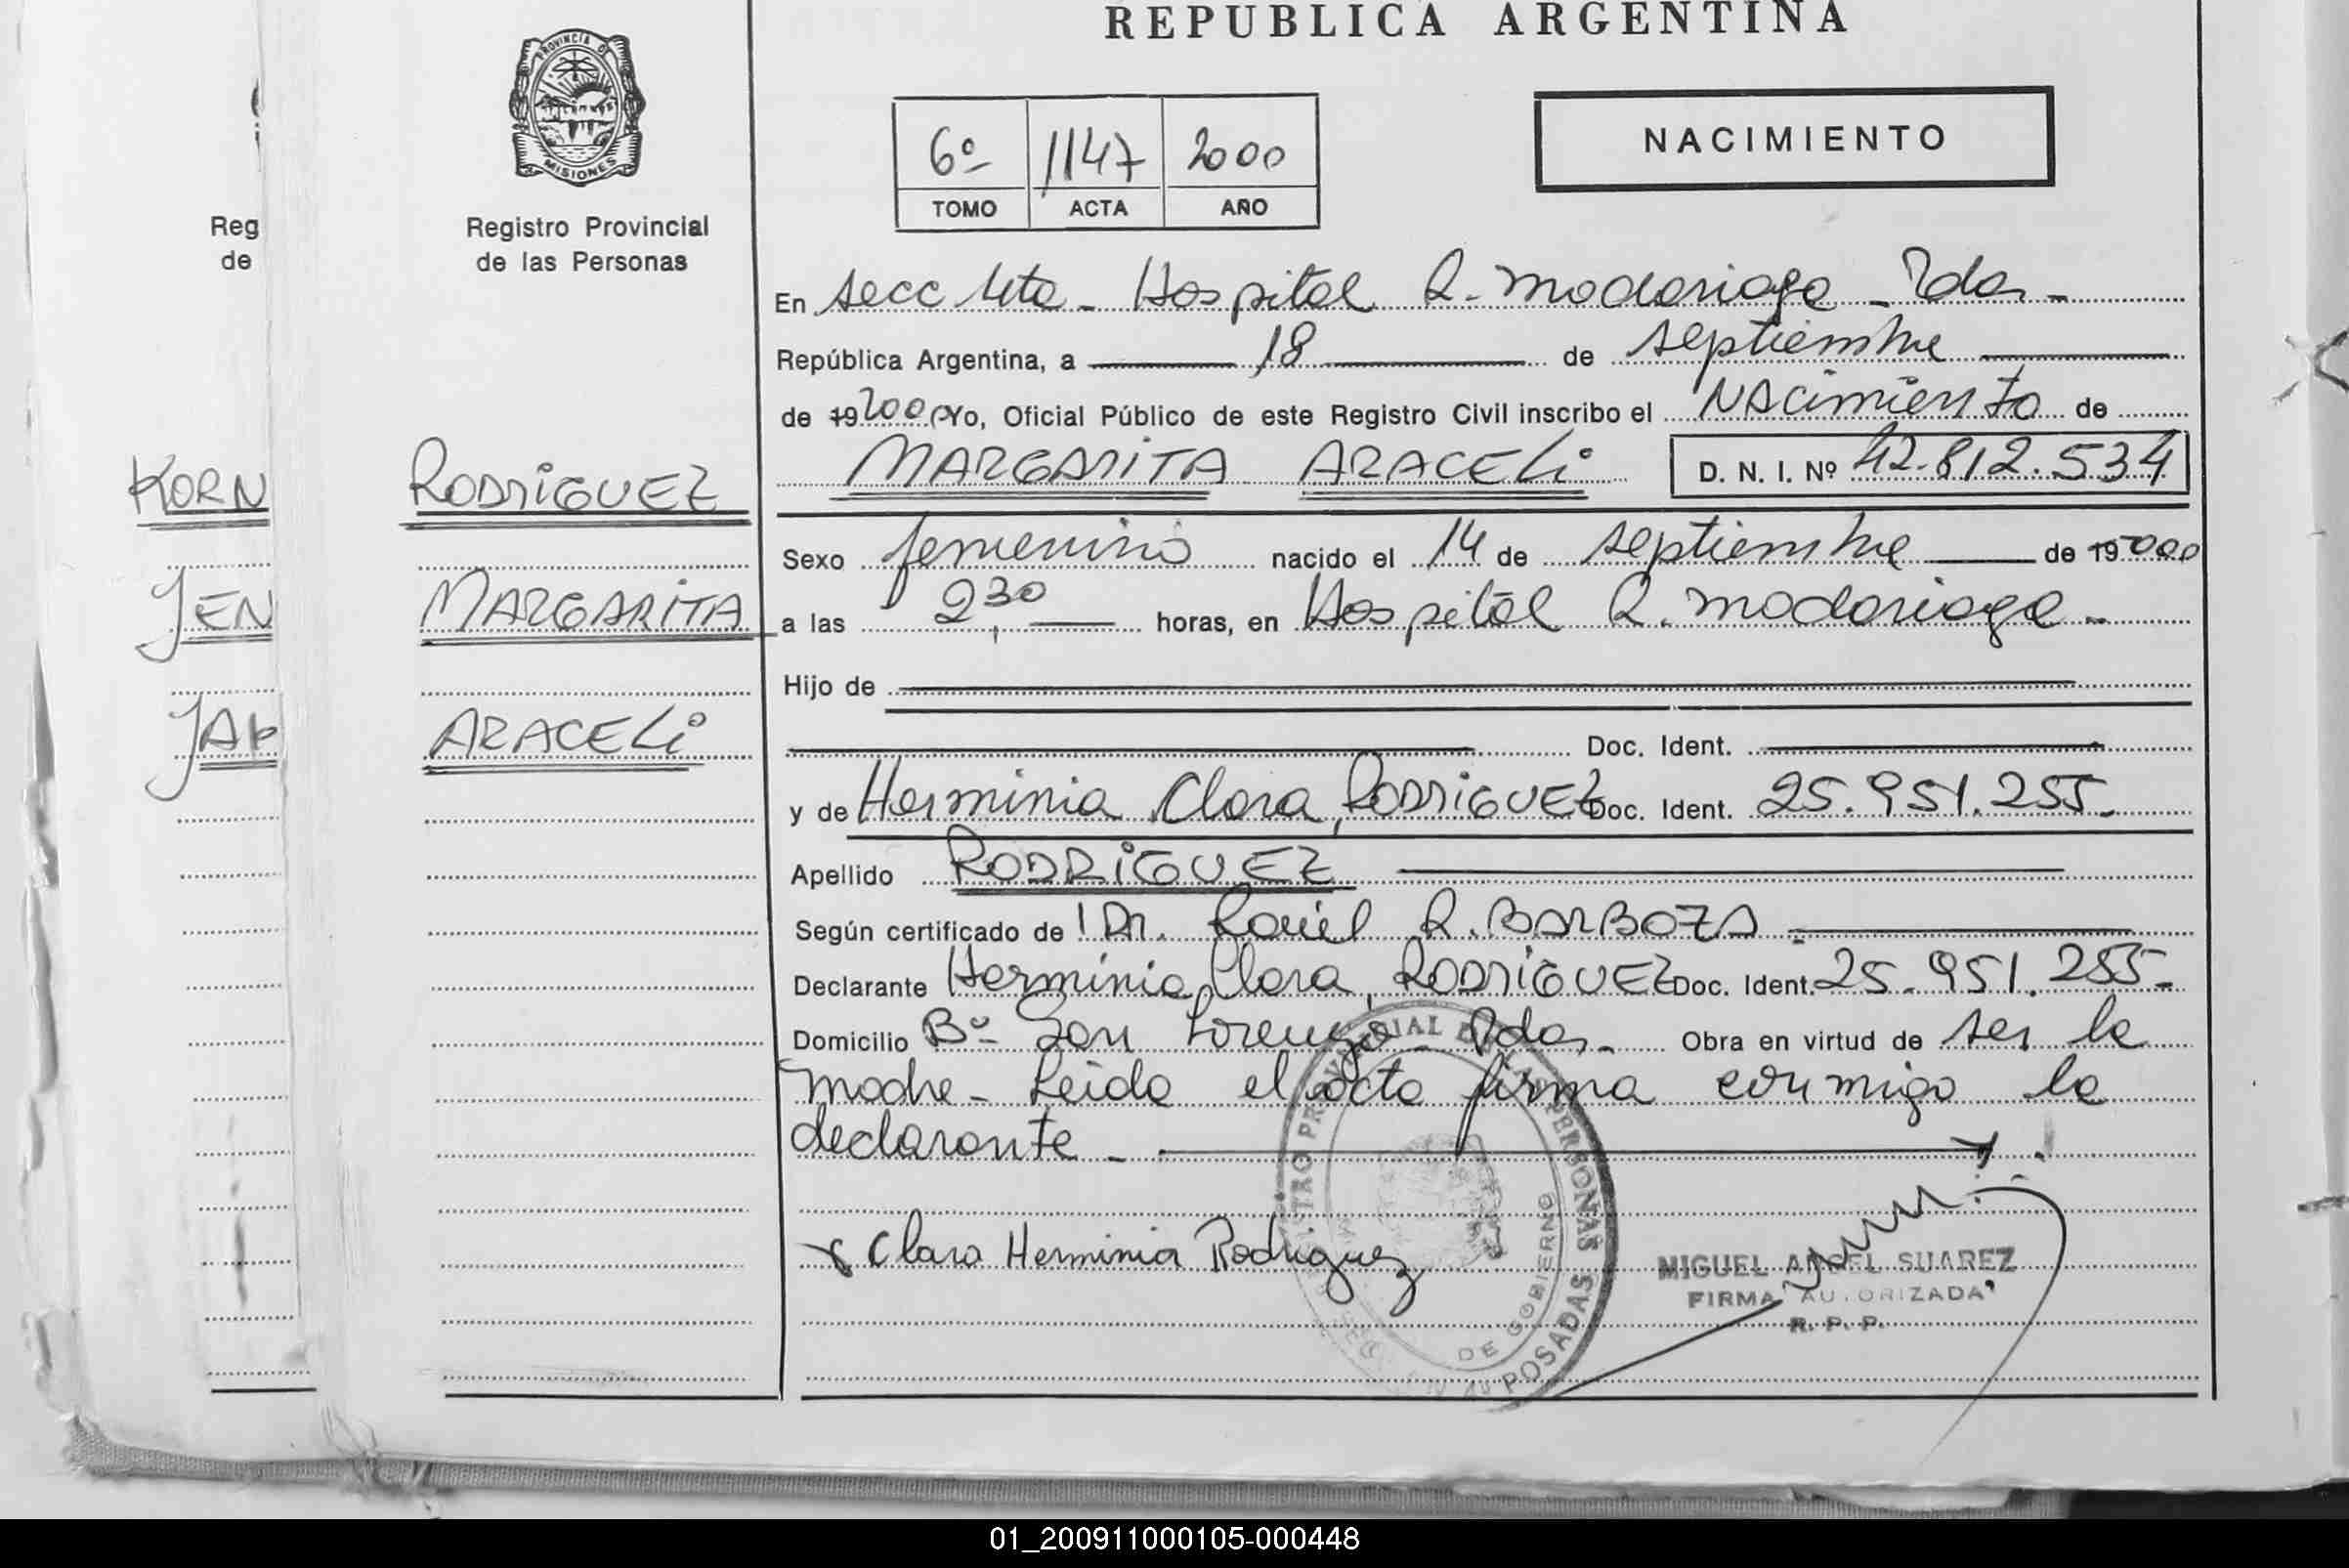 REPUBLICA ARGENTINA
PROVINCIA DE
MISIONES
Reg
de
Registro Provincial
de las Personas
6º 1147 2000
TOMO ACTA AÑO
NACIMIENTO
En Secc 4ta - Hospital R. Madariaga - Pdas -
República Argentina, a 18 de septiembre
de 19 2000 Yo, Oficial Público de este Registro Civil inscribo el NACIMIENTO de
MARGARITA ARACELI D. N. I. Nº 42.812.534
KORN
JEN
RODRIGUEZ
MARGARITA
ARACELI
Sexo femenino nacido el 14 de septiembre de 19 2000
a las 2,30 horas, en Hospital R. Madariaga -
Hijo de
Doc. Ident.
y de Herminia Clara, RODRIGUEZ Doc. Ident. 25.951.255-
Apellido RODRIGUEZ
Según certificado de Dr. Raúl R. BARBOZA
Declarante Herminia Clara, RODRIGUEZ Doc. Ident. 25.951.255-
Domicilio Bº San Lorenzo - Pdas - Obra en virtud de ser la
madre - Leida el acta firma conmigo la
declarante -
x Clara Herminia Rodriguez
MIGUEL ANGEL SUAREZ
FIRMA AUTORIZADA
R. P. P.
PERSONAS
DE GOBIERNO
POSADAS
01_200911000105-000448